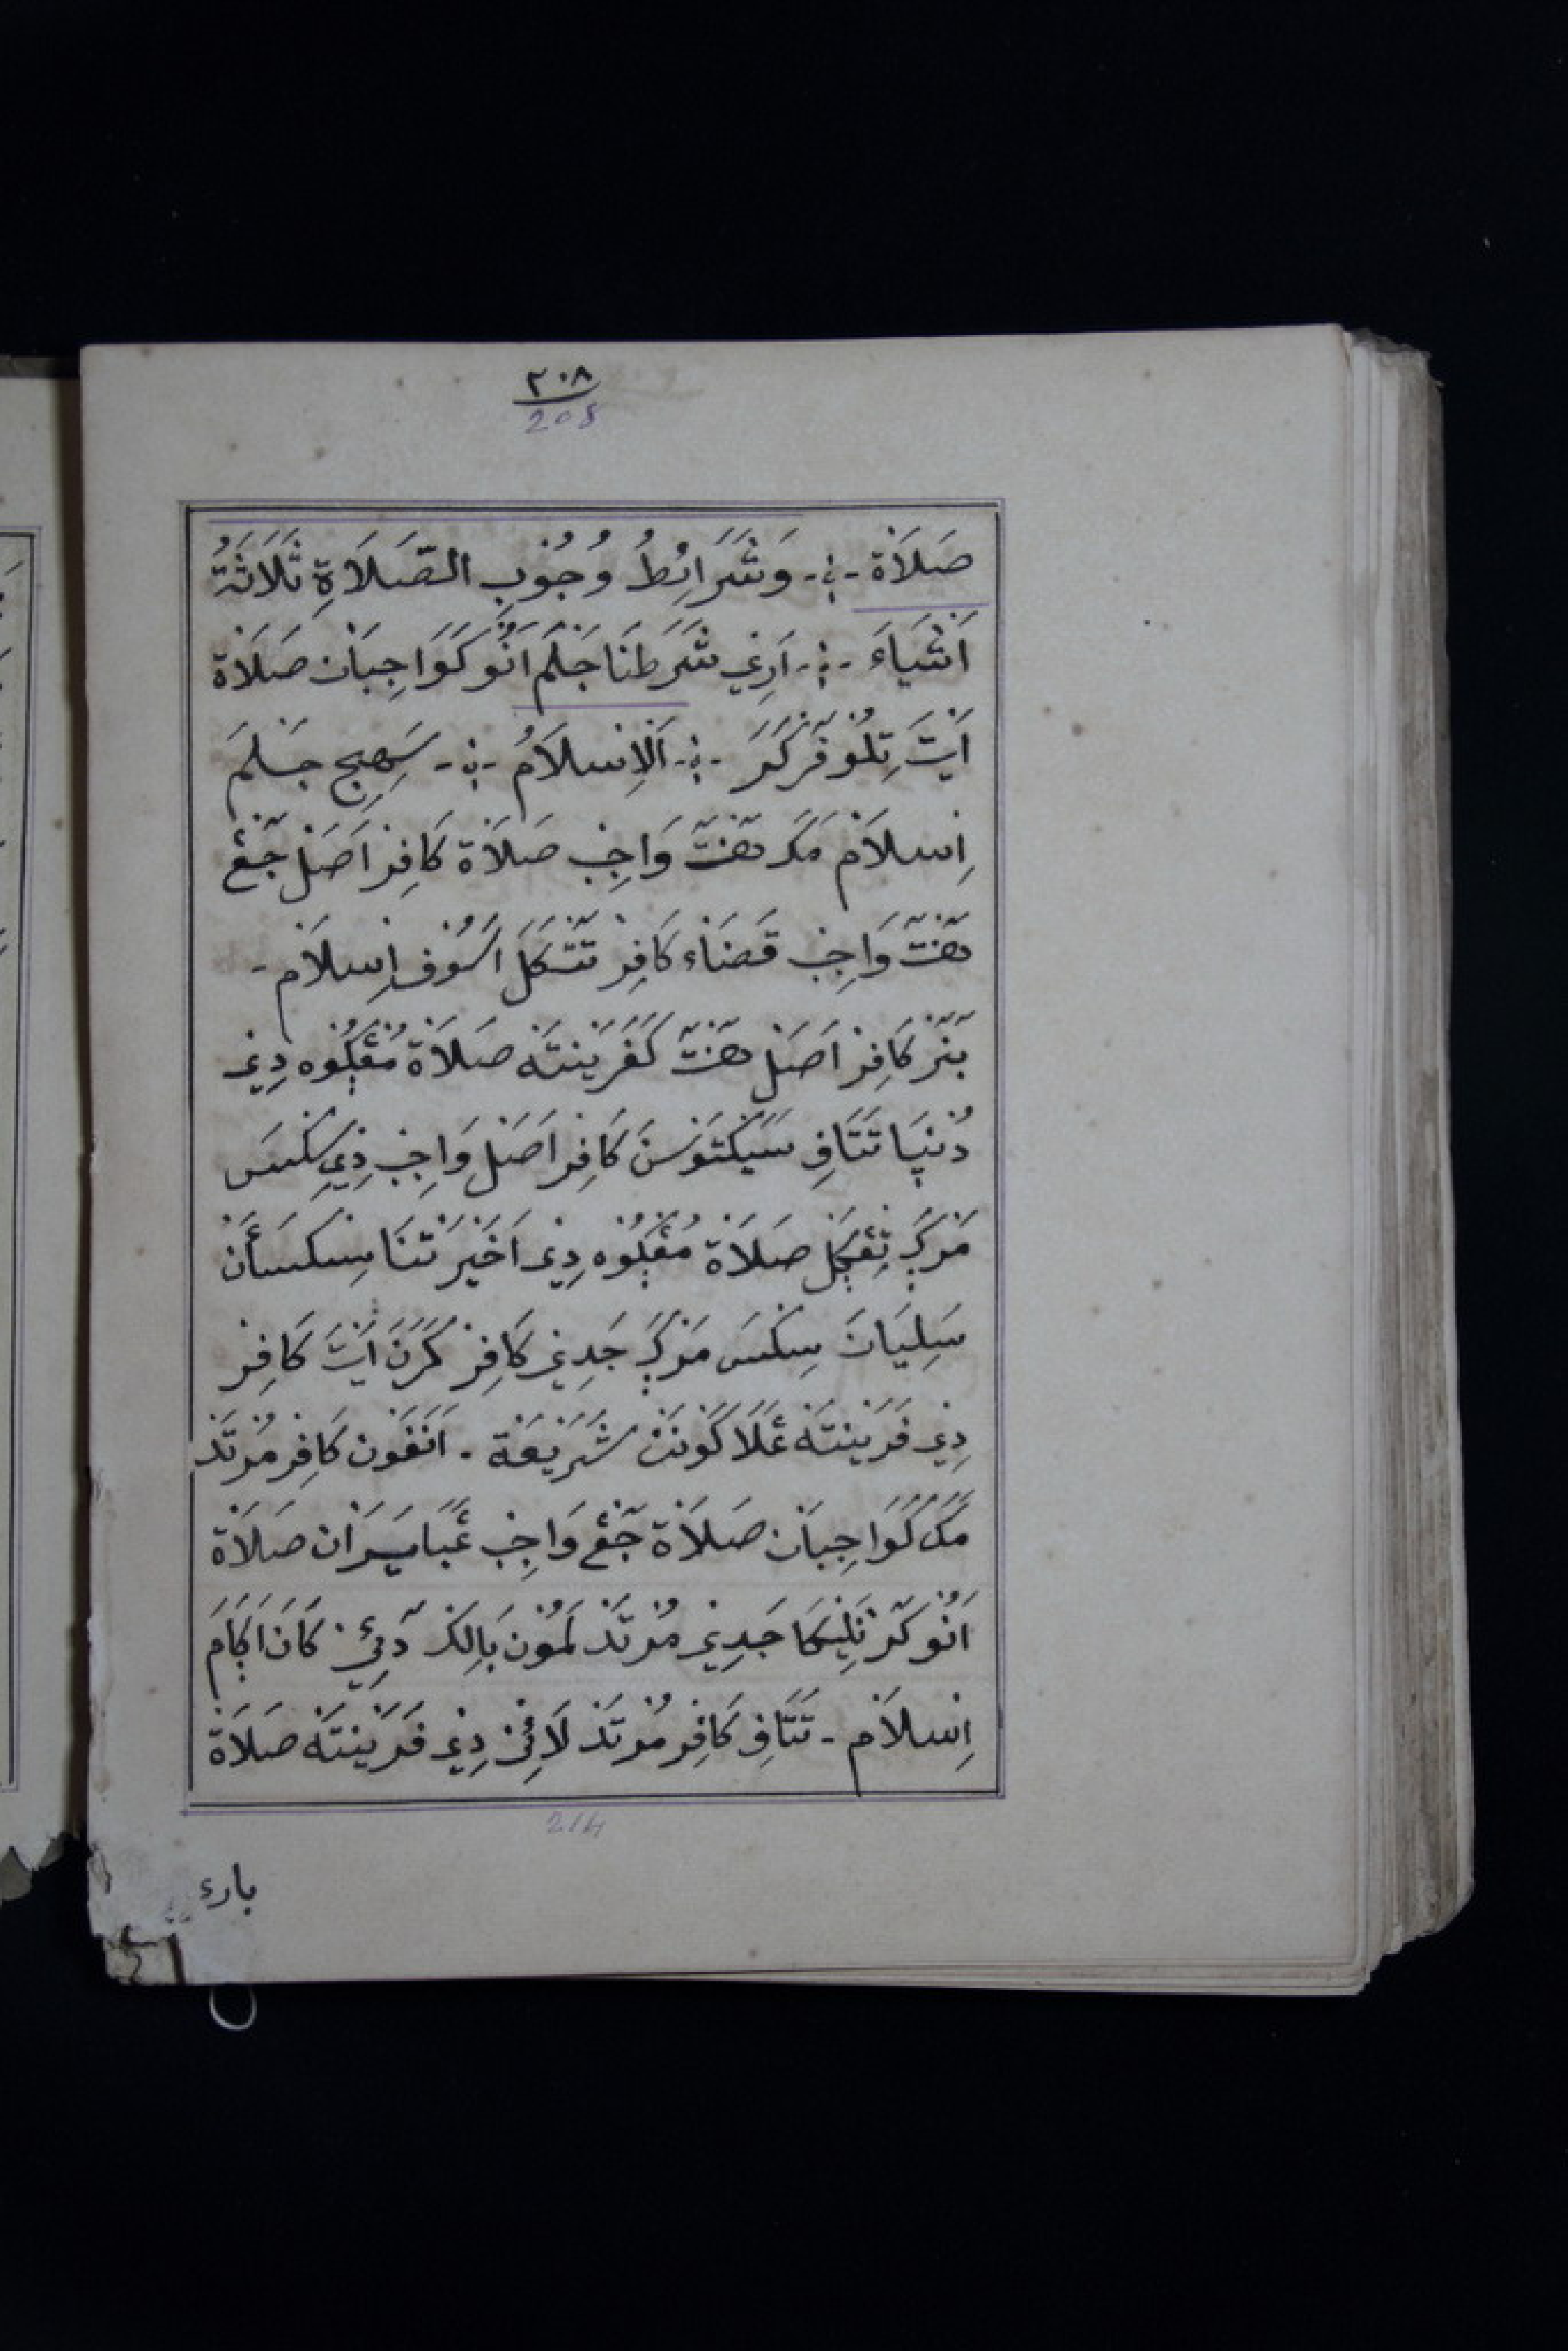 ٢٠٨
208
صَلَاَةْ -:- وَشَرَائِطُ وُجُوْبِ الصَّلَاَةِ ثَلَاَثَةُ
اَشْيَاءَ -:- اَرِيْ شَرَطنَا جَلْمَ اَنُّو كَوَاجِبَانْ صَلَاَةْ
اَيْتَ تِلُو فَرْكَرَ -:- اَلْاِسْلَامُ -:- سَهِجِ جَلْمَ
اِسْلَاَمْ مَكَ هَنْتَ وَاجِبْ صَلَاَةْ كَافِرْ اَصَلْ جَڠْ
هَنْتَ وَاجِبْ قَضَاءْ كَافِرْ تَتْكَلَ اَسُوفْ اِسْلَاَمْ -
بَنَرْ كَافِرْ اَصَلْ هَنْتَ كَفَرَيْنتَهْ صَلَاَةْ مُڠْكُوهْ دِيْ
دُنْيَا تَتَافِ سَيَكْتَوَسْنَ كَافِرْ اَصَلْ وَاجِبْ دِيْ سِكْسَ
مَرَكَ تِڠْكَلْ صَلَاَةْ مُڠْكُوهْ دِيْ اَخَيْرَتْنَا سِكْسَأَنْ
سَلِيَانْ سِكْسَ مَرَكَ جَدِيْ كَافِرْ كَرَنَ اَيْتَ كَافِرْ
دِيْ فَرَيْنتَهْ عَلَا كَوْنَنْ شَرَيْعَةْ - اَنَفَونْ كَافِرْ مُرْتَدْ
مَكَ كَوَاجِبَانْ صَلَاَةْ جَڠْ وَاجِبْ عَبَايَرَانْ صَلَاَةْ
اَنُو كَرْ تَلِيْكَا جَدِيْ مُرْتَدْ لَمُونْ بَالِكْ دَيْئِ كَانَ اَكَامَ
اِسْلَاَمْ - تَتَافِ كَافِرْ مُرْتَدْ لَائِنْ دِيْ فَرَيْنتَهْ صَلَاَةْ
214
بارء